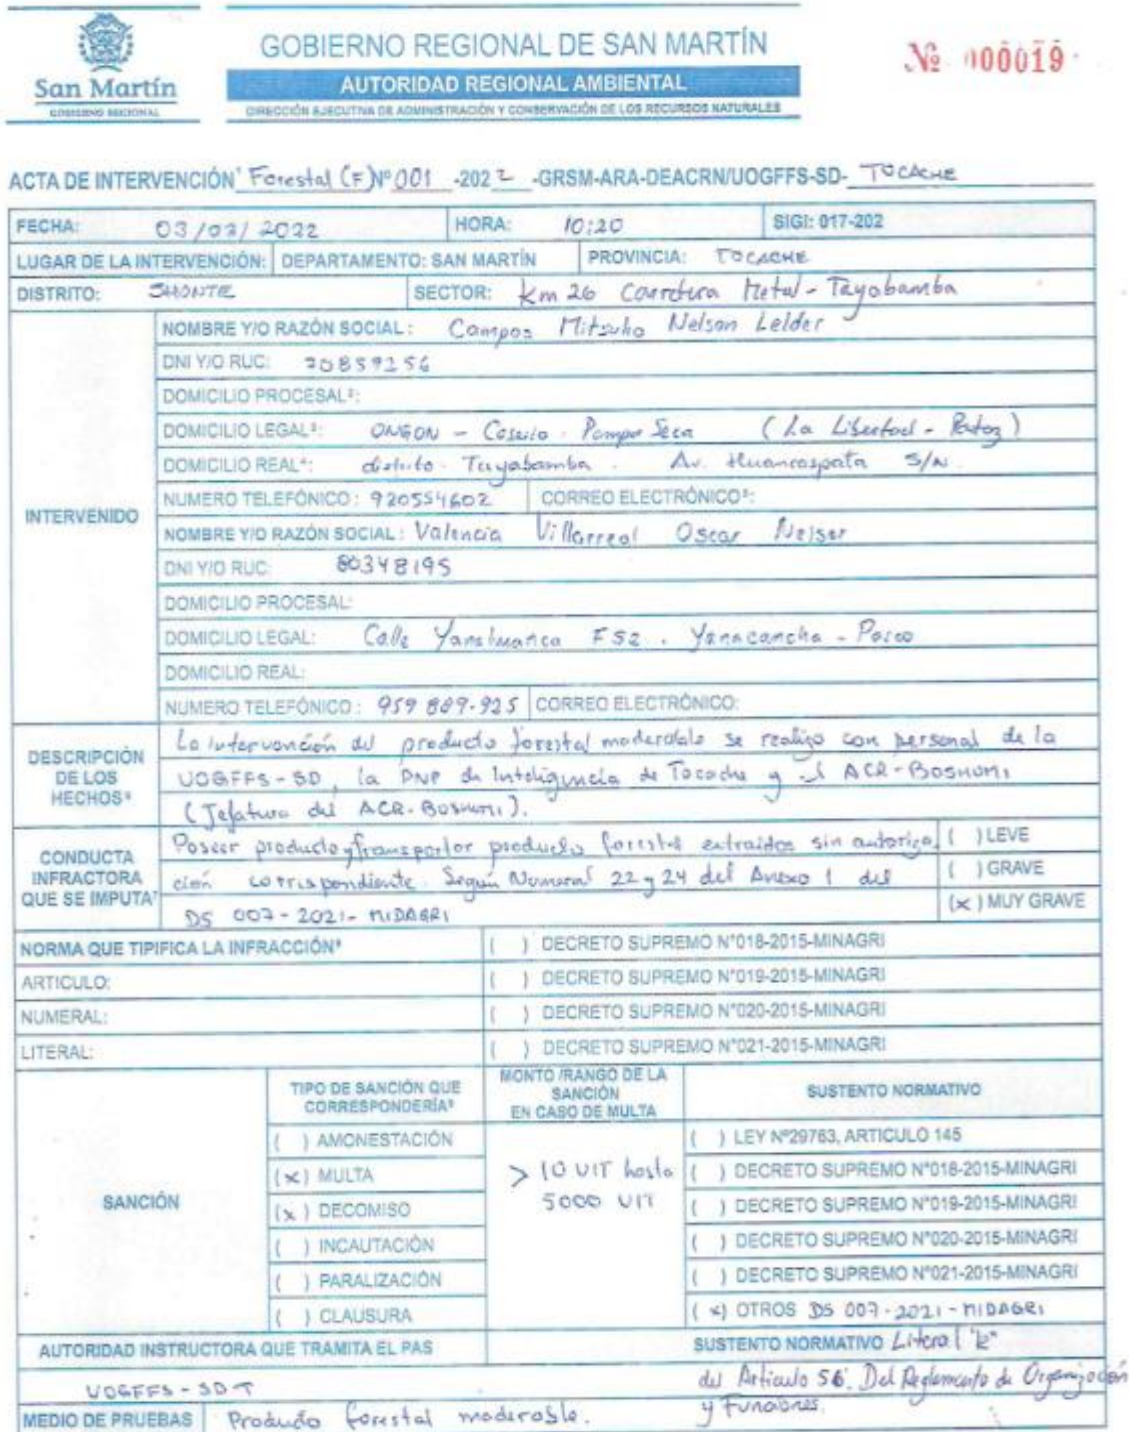 San Martín
GOBIERNO REGIONAL
GOBIERNO REGIONAL DE SAN MARTÍN
AUTORIDAD REGIONAL AMBIENTAL
DIRECCIÓN EJECUTIVA DE ADMINISTRACIÓN Y CONSERVACIÓN DE LOS RECURSOS NATURALES
Nº 000019
ACTA DE INTERVENCIÓN¹ Forestal (F) Nº 001 -2022 -GRSM-ARA-DEACRN/UOGFFS-SD- TOCACHE
FECHA: 03/03/2022 HORA: 10:20 SIGI: 017-202
LUGAR DE LA INTERVENCIÓN: DEPARTAMENTO: SAN MARTÍN PROVINCIA: TOCACHE
DISTRITO: SHONTE SECTOR: Km 26 Carretera Metal - Tayabamba
INTERVENIDO
NOMBRE Y/O RAZÓN SOCIAL: Campos Nelson Lelder
DNI Y/O RUC: 70859256
DOMICILIO PROCESAL²:
DOMICILIO LEGAL³: ONGON - Caserio Pampa Seca (La Libertad - Pataz)
DOMICILIO REAL⁴: distrito Tayabamba. Av. Huancaspata S/N
NUMERO TELEFÓNICO: 920554602 CORREO ELECTRÓNICO⁵:
NOMBRE Y/O RAZÓN SOCIAL: Valencia Villarreal Oscar Neiser
DNI Y/O RUC: 80348195
DOMICILIO PROCESAL:
DOMICILIO LEGAL: Calle F52. Yanacancha - Pasco
DOMICILIO REAL:
NUMERO TELEFÓNICO: 959 889-925 CORREO ELECTRÓNICO:
DESCRIPCIÓN DE LOS HECHOS⁶
La intervención del producto forestal maderable se realizo con personal de la
UOGFFS-SD, la PNP de Inteligencia de Tocache y el ACR-BOSHUMI
(Jefatura del ACR-BOSHUMI).
CONDUCTA INFRACTORA QUE SE IMPUTA⁷
Poseer producto y transportar producto forestal extraidos sin autoriza
cion correspondiente. Según Numeral 22 y 24 del Anexo 1 del
DS 007-2021-MIDAGRI
( ) LEVE
( ) GRAVE
(x) MUY GRAVE
NORMA QUE TIPIFICA LA INFRACCIÓN⁸ ( ) DECRETO SUPREMO N°018-2015-MINAGRI
ARTICULO: ( ) DECRETO SUPREMO N°019-2015-MINAGRI
NUMERAL: ( ) DECRETO SUPREMO N°020-2015-MINAGRI
LITERAL: ( ) DECRETO SUPREMO N°021-2015-MINAGRI
SANCIÓN
TIPO DE SANCIÓN QUE CORRESPONDERÍA⁹
( ) AMONESTACIÓN
(x) MULTA
(x) DECOMISO
( ) INCAUTACIÓN
( ) PARALIZACIÓN
( ) CLAUSURA
MONTO /RANGO DE LA SANCIÓN EN CASO DE MULTA
> 10 UIT hasta
5000 UIT
SUSTENTO NORMATIVO
( ) LEY Nº29763, ARTICULO 145
( ) DECRETO SUPREMO N°018-2015-MINAGRI
( ) DECRETO SUPREMO N°019-2015-MINAGRI
( ) DECRETO SUPREMO N°020-2015-MINAGRI
( ) DECRETO SUPREMO N°021-2015-MINAGRI
(x) OTROS DS 007-2021-MIDAGRI
AUTORIDAD INSTRUCTORA QUE TRAMITA EL PAS
UOGFFS-SDT
SUSTENTO NORMATIVO Literal "k"
del Articulo 56. Del Reglamento de Organización
y Funciones.
MEDIO DE PRUEBAS Producto forestal maderable.